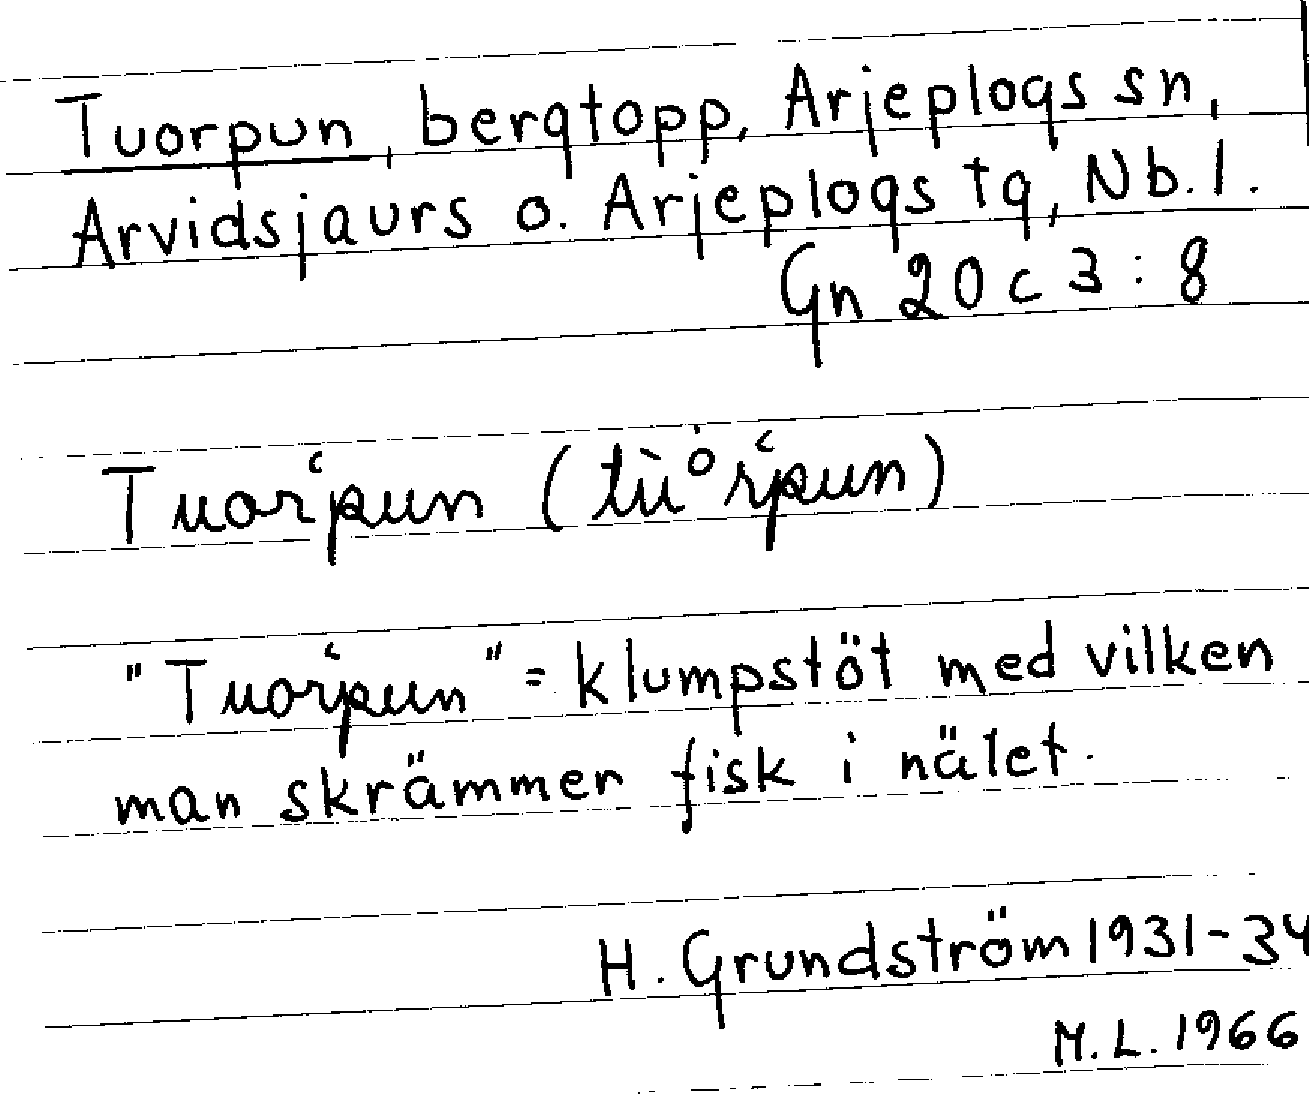 Tuorpun, bergtopp, Arjeplogs sn,
Arvidsjaurs o. Arjeplogs tg, Nb. l.
Gn 20 c 3 : 8
Tuorʻpun (tùo̊rʻpun)
"Tuorʻpun" = klumpstöt med vilken
man skrämmer fisk i nälet.
H. Grundström 1931-34
M. L. 1966